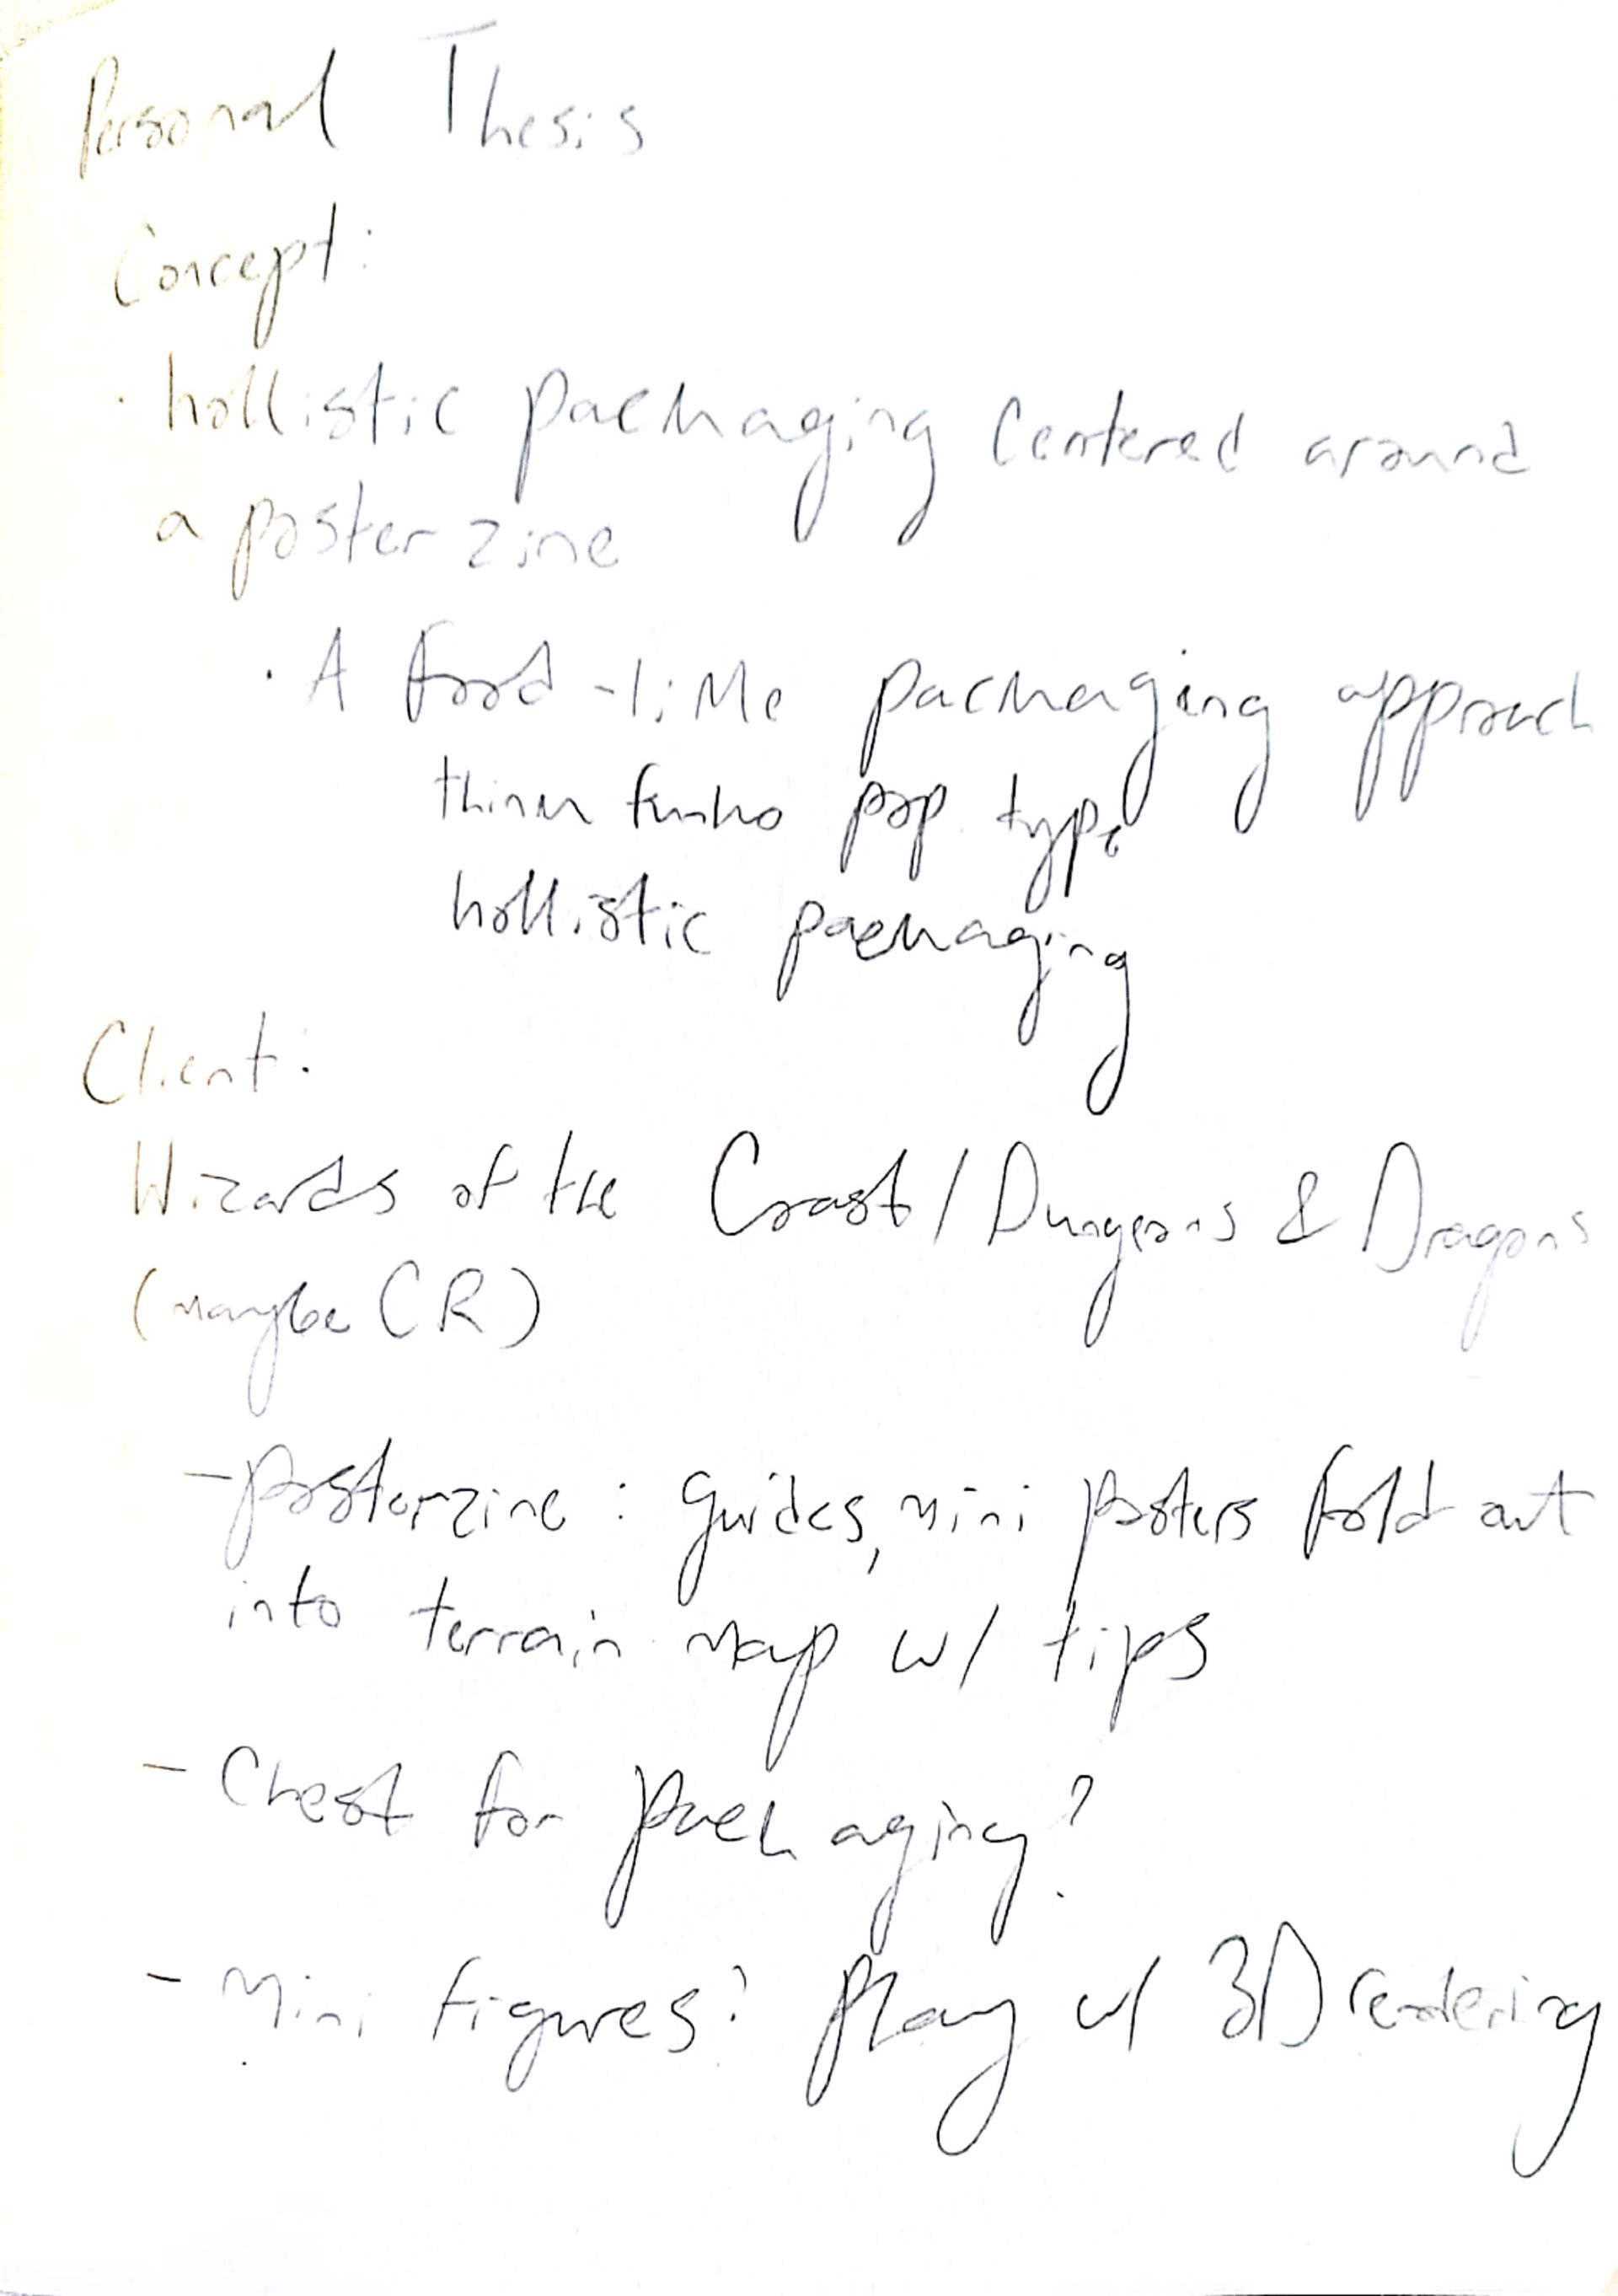 Personal Thesis
Concept:
· hollistic packaging centered around
a poster zine
· A food-like packaging approach
think funko pop type
hollistic packaging
Client:
Wizards of the Coast / Dungeons & Dragons
(maybe CR)
- posterzine : guides, mini posters fold out
into terrain map w/ tips
- Chest for packaging?
- Mini figures? Play w/ 3D rendering